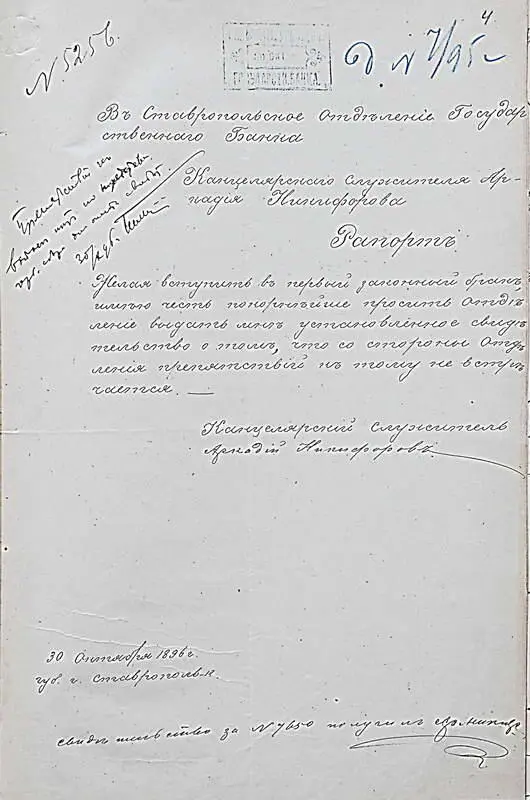 4
N. 5256.
ГОСУДАРСТВ. БАНКА.
д N 7/95 г
Въ Ставропольское отдѣленіе Государ
ственнаго Банка
Канцелярскаго служителя Ар-
кадія Никифорова
Рапортъ
Желая вступить въ первый законный бракъ,
имѣю честь покорнѣйше просить Отдѣ
леніе выдать мнѣ установленное свидѣ
тельство о томъ, что со стороны Отдѣ
ленія препятствій къ тому не встрѣ
чается. —
Канцелярскій служитель
Аркадій Никифоровъ
30 Октября 1896 г.
губ. г. Ставрополь-к.
свидѣтельство за N 7650 получилъ